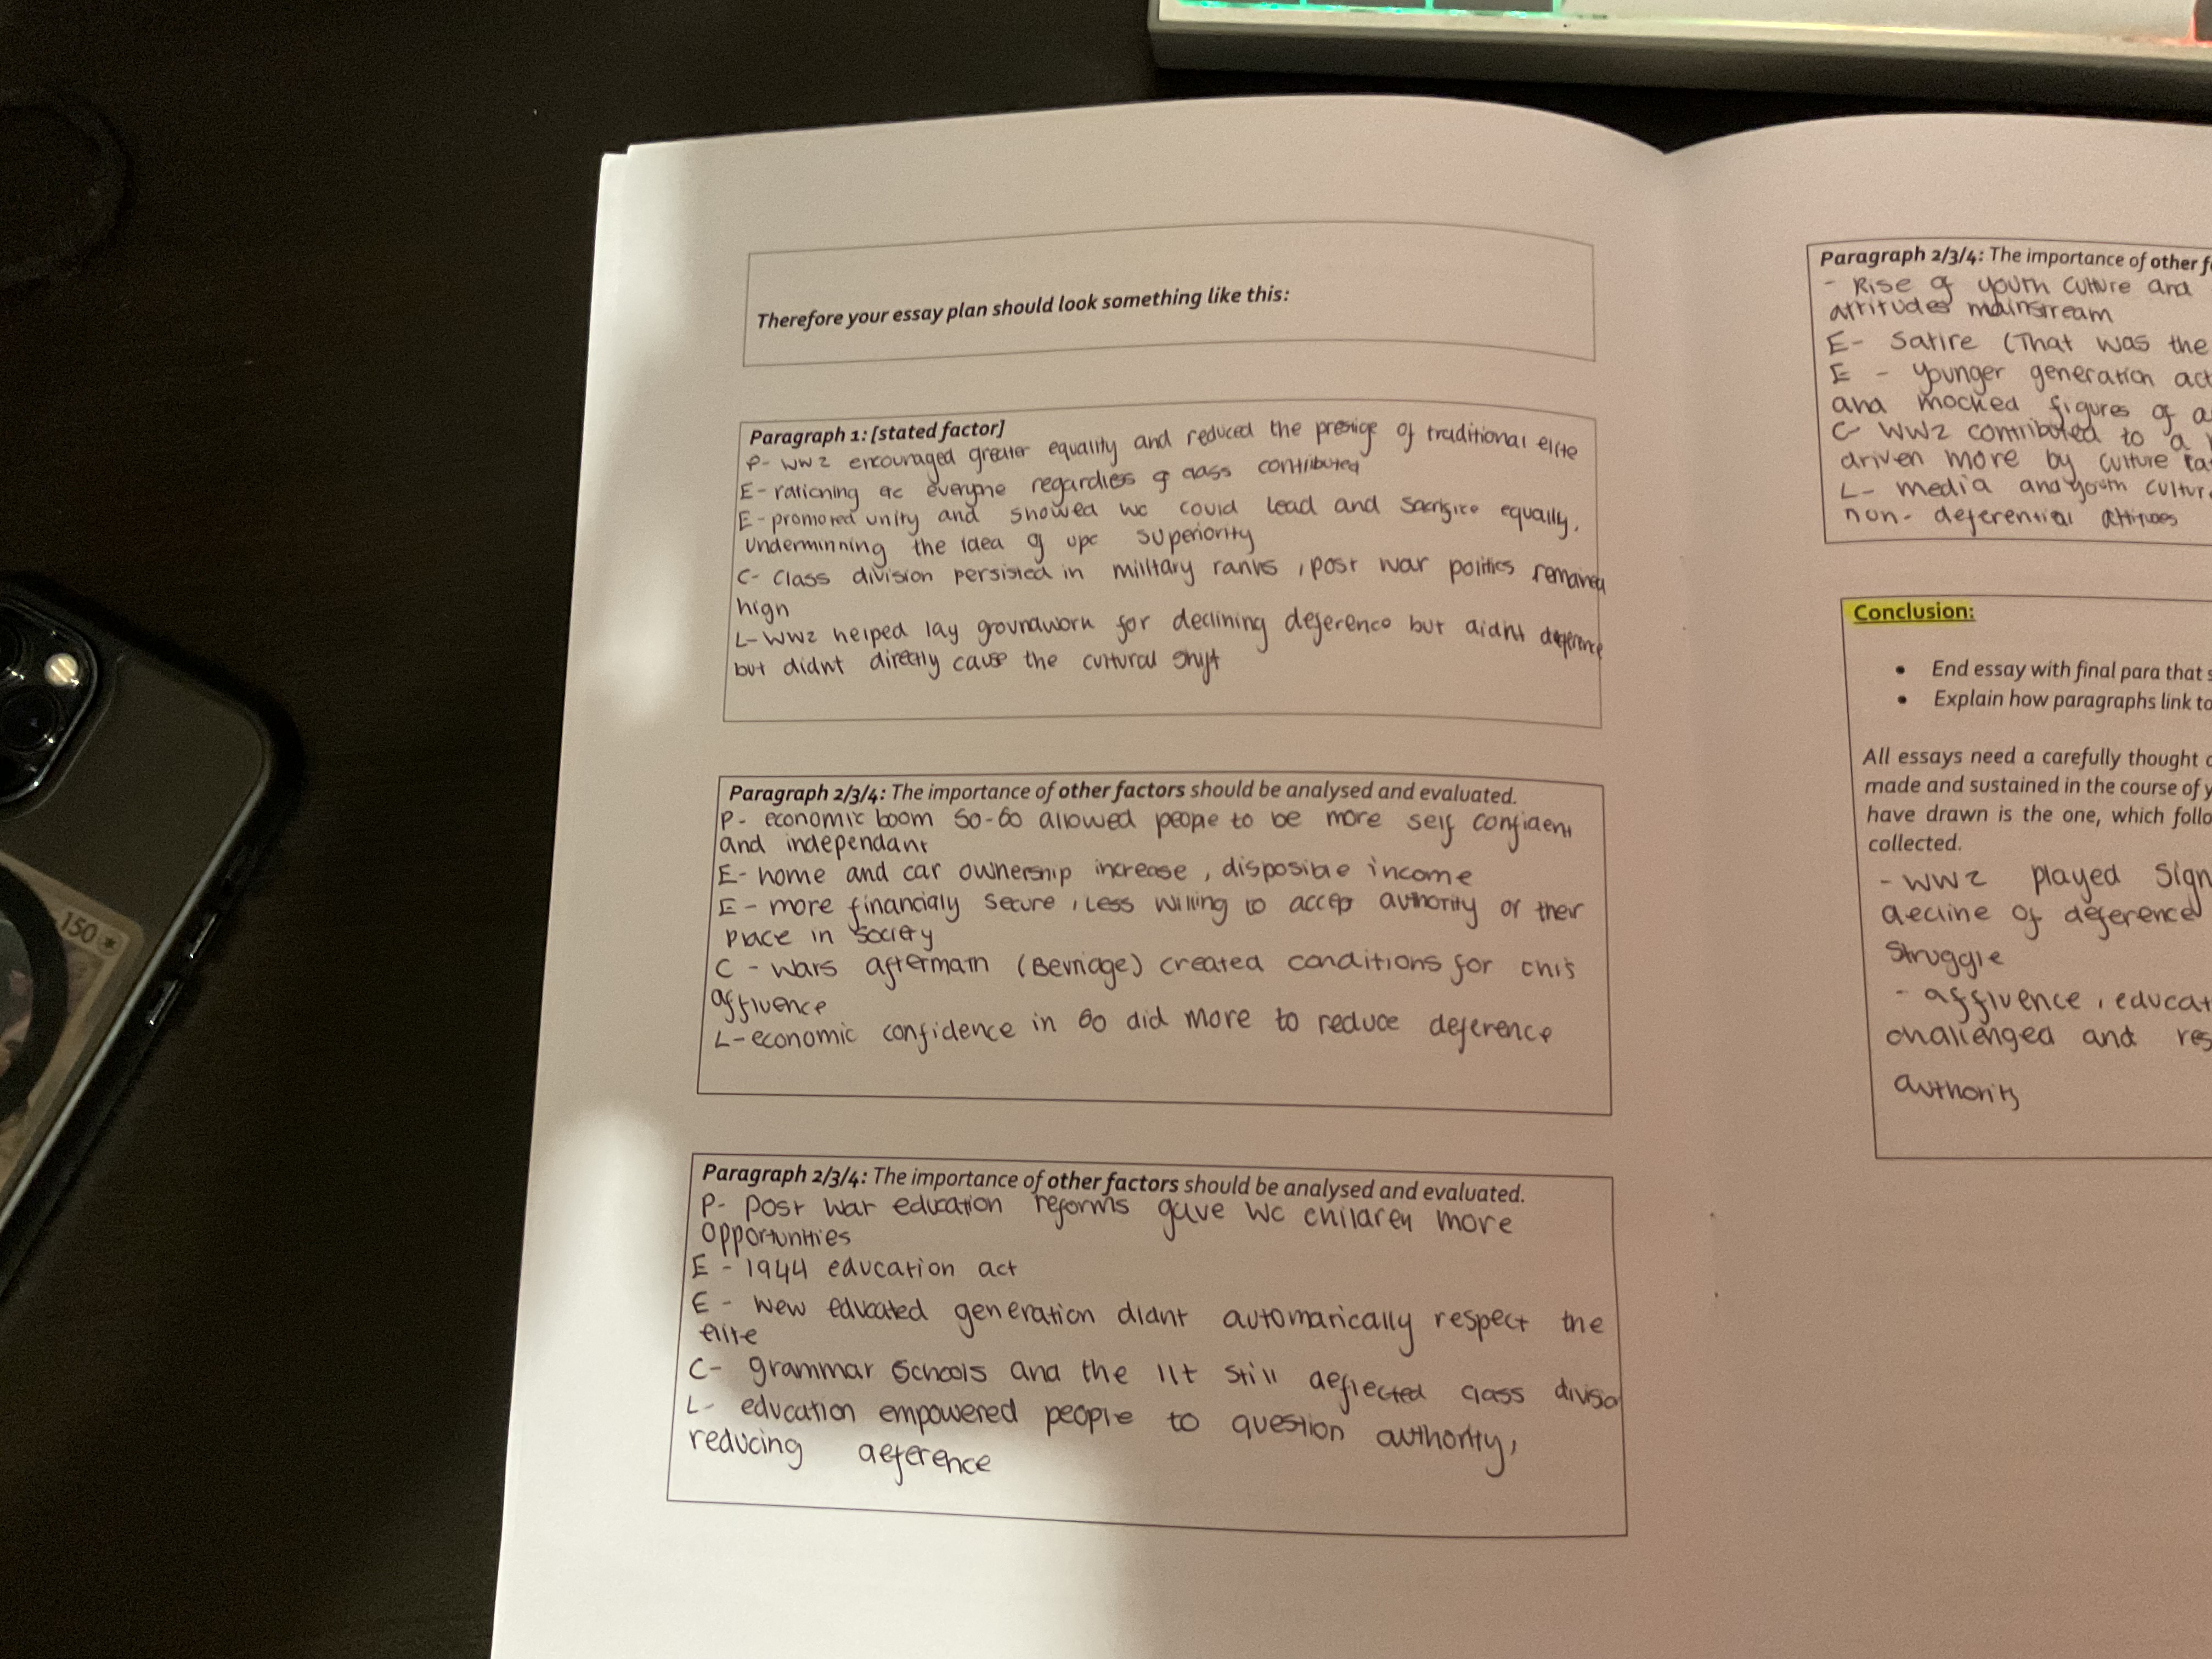 Therefore your essay plan should look something like this:
Paragraph 1: [stated factor]
P- WW2 encouraged greater equality and reduced the prestige of traditional elite
E- rationing etc everyone regardless of class contributed
E- promoted unity and showed wc could lead and sacrifice equally,
underminning the idea of upc superiority
C- class division persisted in military ranks, post war politics remained
high
L- WW2 helped lay groundwork for declining deference but didnt deference
but didnt directly cause the cultural shift
Paragraph 2/3/4: The importance of other factors should be analysed and evaluated.
P- economic boom 50-60 allowed people to be more self confident
and independant
E- home and car ownership increase, disposible income
E- more financialy secure, less willing to accept authority or their
place in society
C - wars aftermath (Bevriage) created conditions for this
affluence
L- economic confidence in 60 did more to reduce deference
Paragraph 2/3/4: The importance of other factors should be analysed and evaluated.
P- post war education reforms gave wc children more
opportunities
E - 1944 education act
E - new educated generation didnt automatically respect the
elite
C- grammar schools and the 11+ still deflected class divisio
L- education empowered people to question authority,
reducing deference
Paragraph 2/3/4: The importance of other f
- Rise of youth culture and
attitudes mainstream
E- Satire (That was the
E - younger generation act
and mocked figures of a
C- WW2 contributed to a
driven more by culture
L- media and youth cultur
non-deferential attitudes
Conclusion:
• End essay with final para that s
• Explain how paragraphs link to
All essays need a carefully thought o
made and sustained in the course of y
have drawn is the one, which follo
collected.
- WW2 played sign
decline of deference
struggle
- affluence, educat
challenged and res
authority
150